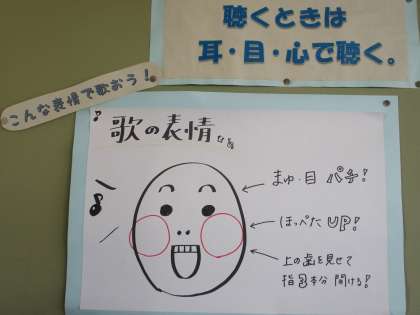 聴くときは
耳・目・心で聴く。
こんな表情で歌おう!
歌の表情
まゆ・目 パチ!
ほっぺた UP!
上の歯を見せて
指3本分 開ける!